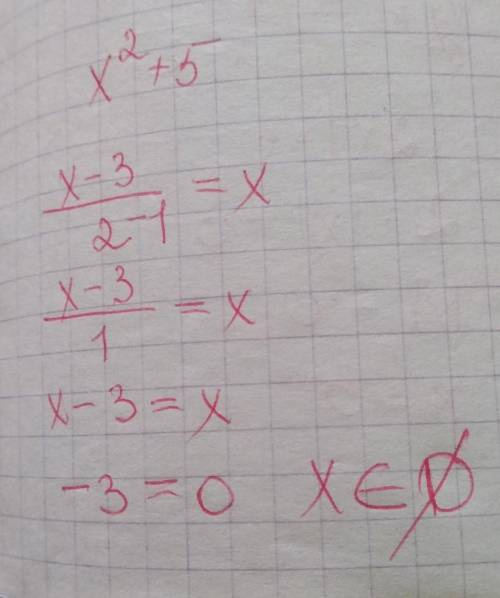 x² + 5
(x - 3)/(2 - 1) = x
(x - 3)/1 = x
x - 3 = x
-3 = 0 x ∈ ∅